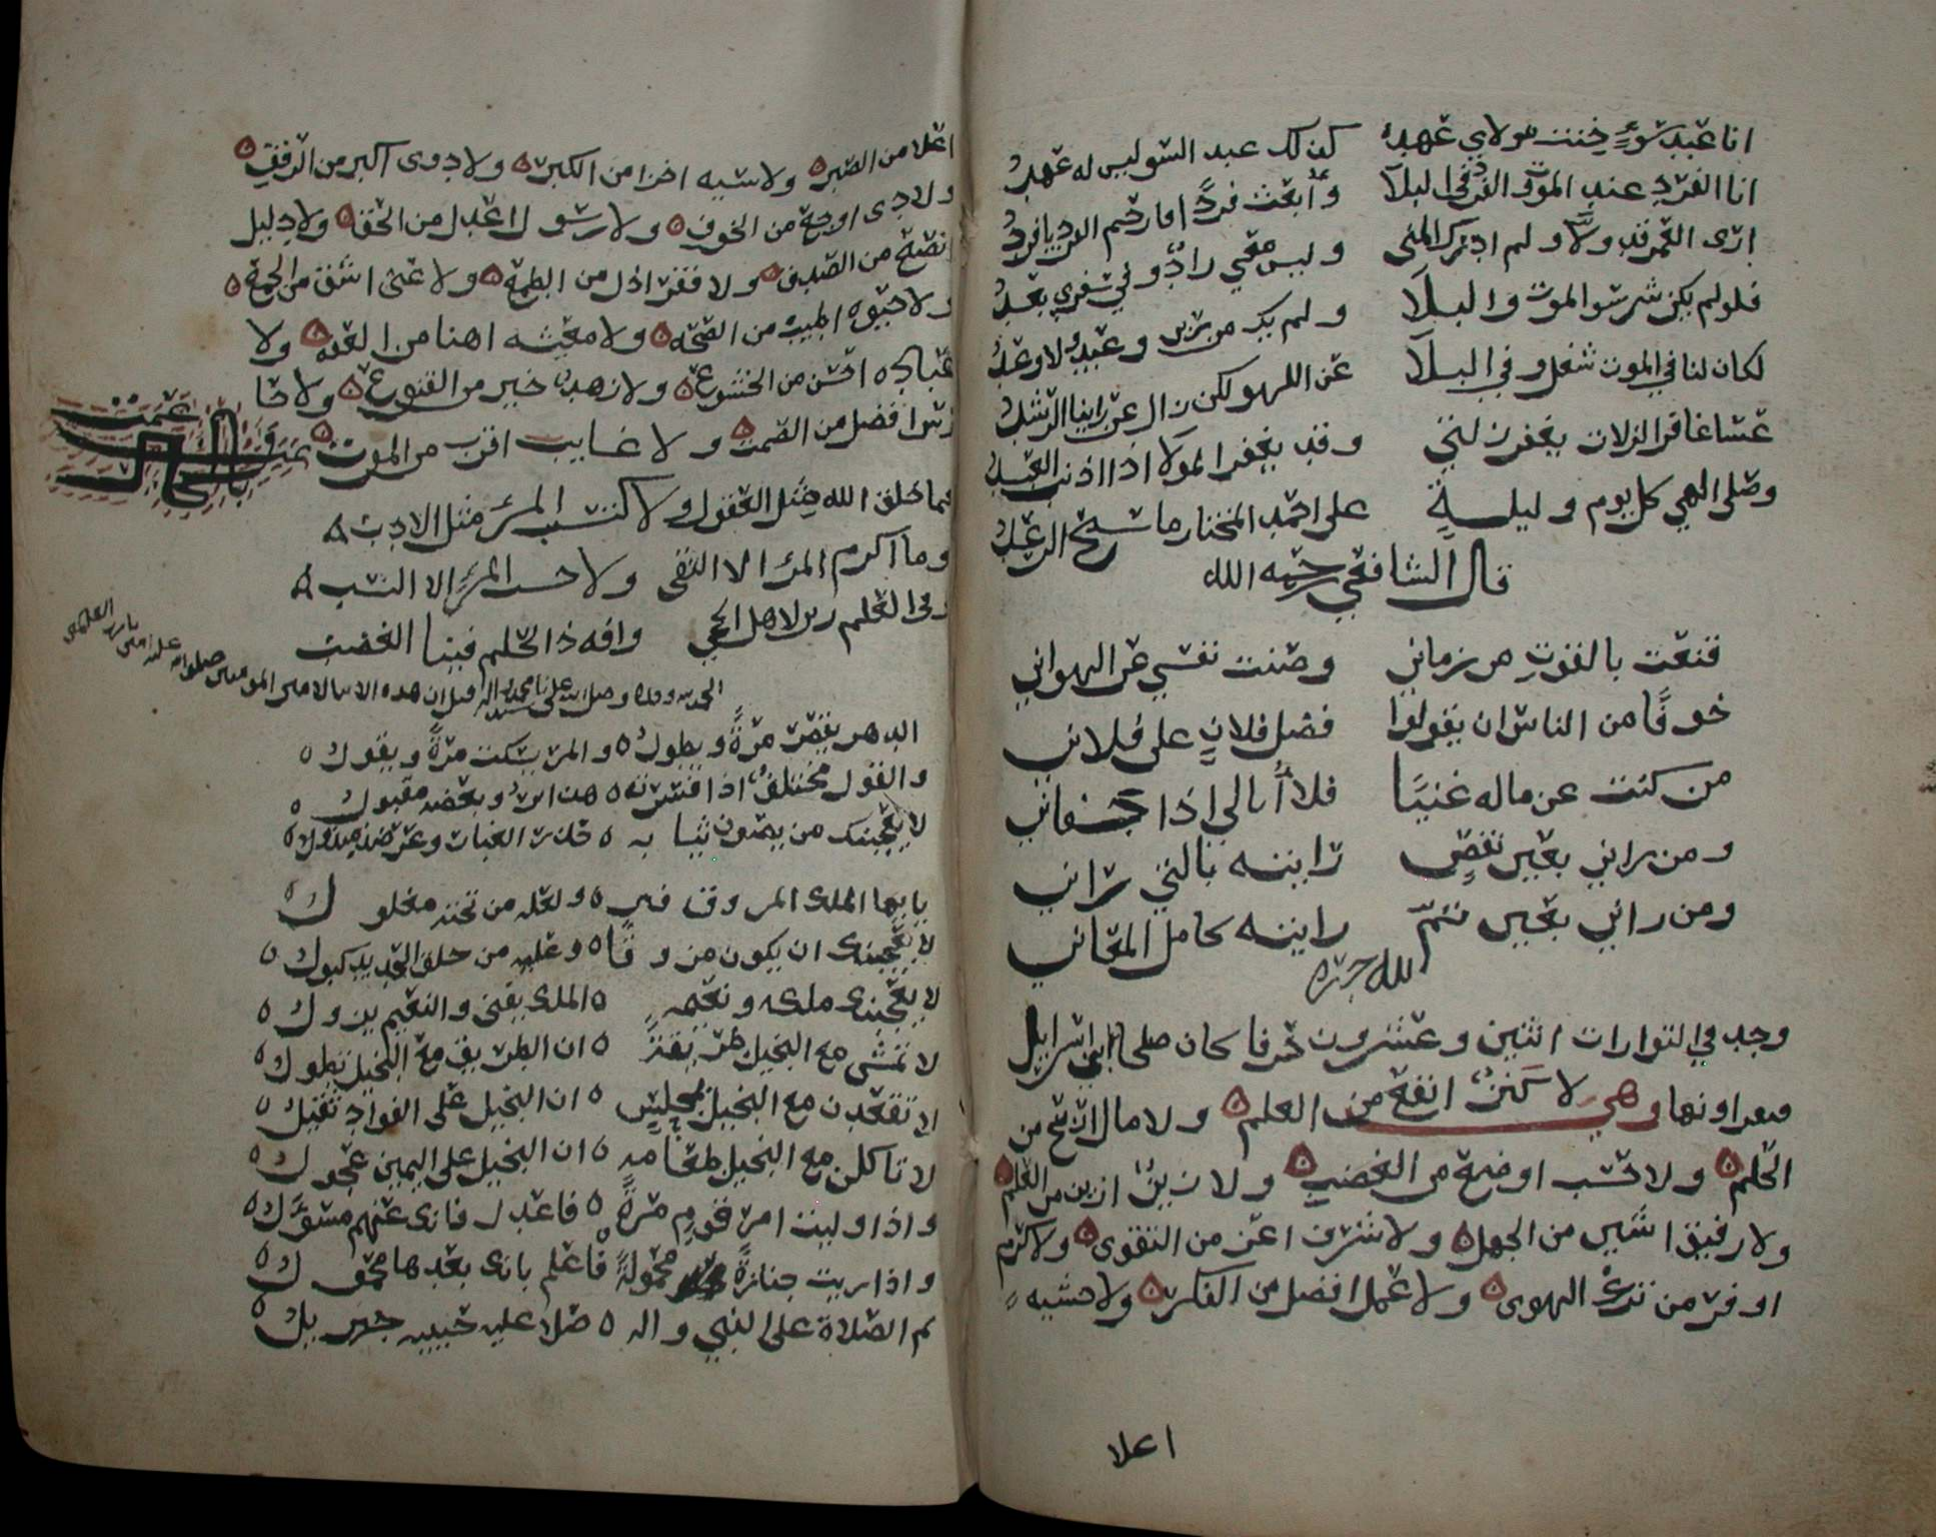 انا عبد سوءٍ خنت مولاي عهده كذلك عبد السو ليس له عهد
انا الفرد عند الموت والفرد في البلا وأبعث فردًا فارحم الفرد يا فرد
ارى العمر قد ولّا ولم ادرك المنى وليس معي زادٌ وفي سفري بعد
فلو لم يكن شي سوا الموت والبلا ولم يك من وعيد ولا وعد
لكان لنا في الموت شغل وفي البلا عن اللهو لكن زال عن راينا الرشد
عسا غافر الزلات يغفر زلتي وقد يغفر المولا اذا اذنب العبد
وصلى الهي كل يوم وليلةٍ على احمد المختار ما سبح الرعد
قال الشافعي رحمه الله
قنعت بالقوت من زماني وصنت نفسي عن الهواني
خوفًا من الناس ان يقولوا فضل فلانٍ على فلاني
من كنت عن ماله غنيًا فلا أبالي اذا جفاني
ومن راني بعين نقصٍ رايته بالتي راني
ومن راني بعين تمّ رايته كامل المعاني
لله دره
وجد في التوارات اثنين وعشرون حرفا كان صلحا بني اسرايل
يقراونها وهي لا كنزٌ انفع من العلم ولا مال اربح من
الحلم ولا حسب اوضع من الغضب ولا زينٌ ازين من العلم
ولا رفيق اشين من الجهل ولا شرف اعز من التقوى ولا كرم
اوفر من ترك الهوى ولا عمل افضل من الفكر ولا حسنه
اعلا
اعلا من الصبر ولا سيه اخزا من الكبر ولا دوى اكبر من الرفق
ولا دى اوجع من الخوف ولا رسول اعدل من الحق ولا دليل
انصح من الصدق ولا فقر اذل من الطمع ولا غنى اشق من الجمع
ولا حيوه اطيب من الصحه ولا معيشه اهنا من العفه ولا
عباده احسن من الخشوع ولا زهد خير من القنوع ولا حا
رس افضل من الصمت ولا غايب اقرب من الموت
تمت
فما خلق الله مثل العقول ولا كتسب المرء مثل الادب
وما اكرم المرء الا التقى ولا حسب المرء الا النسب
وفي العلم زين لاهل الحجى وافه ذا الحلم فينا الغضب
الحمد لله وحده وصلى الله على سيدنا محمد واله قيل ان هذه الابيات لامير المومنين صلوات الله عليه امين يا رب العلمين
الدهر يقصر مرةً ويطول والمرء يسكت مرةً ويقول
والقول مختلفٌ اذا فسرته هذا يرد وبعضه مقبول
لا يعجبنك من يصون ثيابه حذر الغبار وعرضه مبذول
يا ايها الملك ولعله من تحته مغلول
لا يعجبنك ان يكون مزوقًا وعليه من حلق الحديد كبول
لا يعجبنك ملكه ونعيمه الملك يفنى والنعيم يزول
لا تمشي مع البخيل طريقةً ان الطريق مع البخيل تطول
لا تقعدن مع البخيل بمجلسٍ ان البخيل على الفواد ثقيل
لا تاكلن مع البخيل طعامه ان البخيل على اليمين عجول
واذا وليت امر قومٍ مرةً فاعدل فانك عنهم مسؤل
واذا ريت جنازةً محمولةً فاعلم بانك بعدها محمول
ثم الصلاة على النبي واله صلا عليه حبيبه جبريل